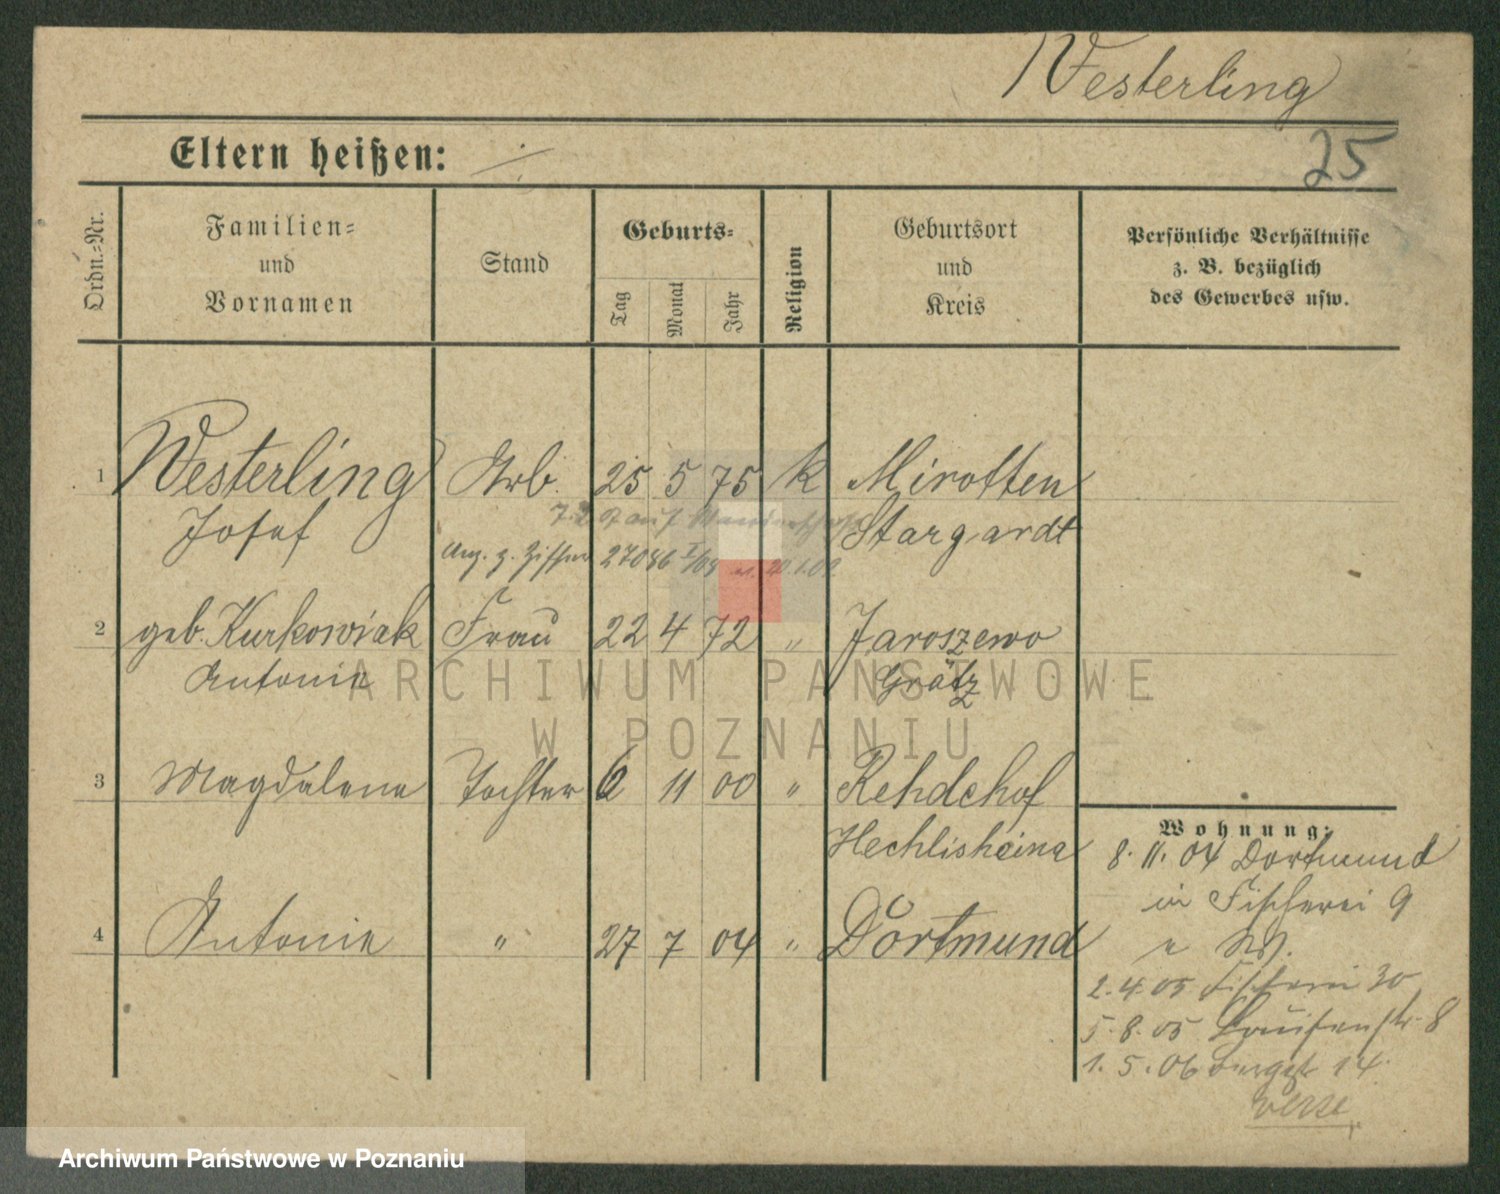 Westerling
Eltern heißen: ⁒ 25
Ordn.-Nr.
Familien-
und
Vornamen
Stand
Geburts-
Tag
Monat
Jahr
Religion
Geburtsort
und
Kreis
Persönliche Verhältnisse
z. B. bezüglich
des Gewerbes usw.
1 Westerling Arb. 25 5 75 k Mirotken
Josef Stargardt
27086 I/08
2 geb. Kurkowiak Frau 22 4 72 " Jaroszewo
Antonie Grätz
3 Magdalena Tochter 6 11 00 " Rehdehof
4 Antonie " 27 7 04 " Dortmund
Wohnung:
8. 11. 04 Dortmund
in Fischerei 9
2. 4. 05 Fischerei 30
5. 8. 05 Louisenstr. 8
1. 5. 06 Burgstr 14
ARCHIWUM PAŃSTWOWE
W POZNANIU
Archiwum Państwowe w Poznaniu